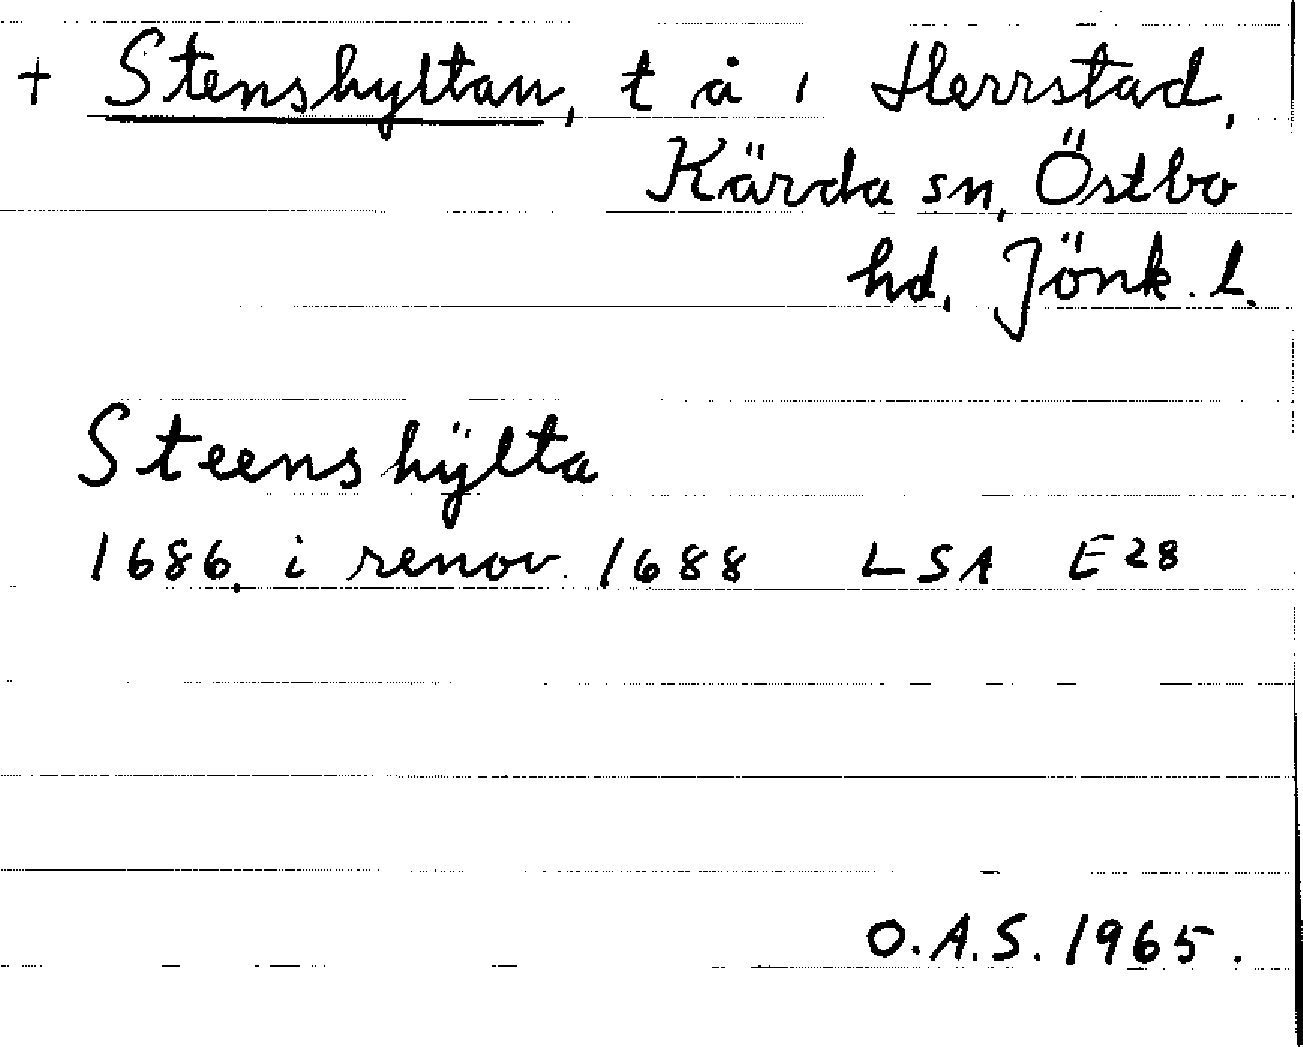 + Stenshyltan, t å i Herrstad,
Kärda sn, Östbo
hd, Jönk. l.
Steenshÿlta
1686, i renov. 1688 LSA E28
O.A.S. 1965.